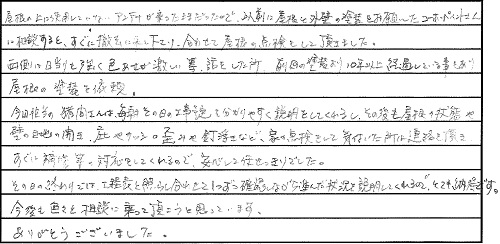 屋根の上に使用していない、アンテナが乗ったままだったので、以前に屋根と外壁の塗装をお願いしたユーホーペイントさん
に相談すると、すぐに撤去に来て下さり、合わせて屋根の点検をして頂きました。
西側に日当り強く色あせが激しい事、話をした所、前回の塗装より10年以上経過している事もあり
屋根の塗装を依頼。
今回担当の さんは、毎朝その日の工事説を分かりやすく説明をしてくれるし、その後も屋根の状態や
壁の目地の開き、庇やサッシの歪みや釘浮きなど、家の点検をして気付いた所は連絡を頂き
すぐに補修等の対応をしてくれるので、安心して任せっきりでした。
その日の終わりには、工程表と照らし合わせて1つずつ確認しながら進んだ状況を説明してくれるので、とても納得です。
今後も色々と相談に乗って頂こうと思っています。
ありがとうございました。